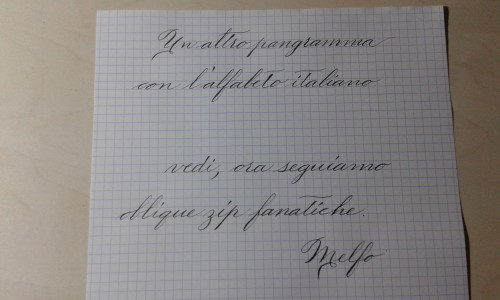 Un altro pangramma
con l'alfabeto italiano
vedi, ora seguiamo
oblique zip fanatiche.
Melfo